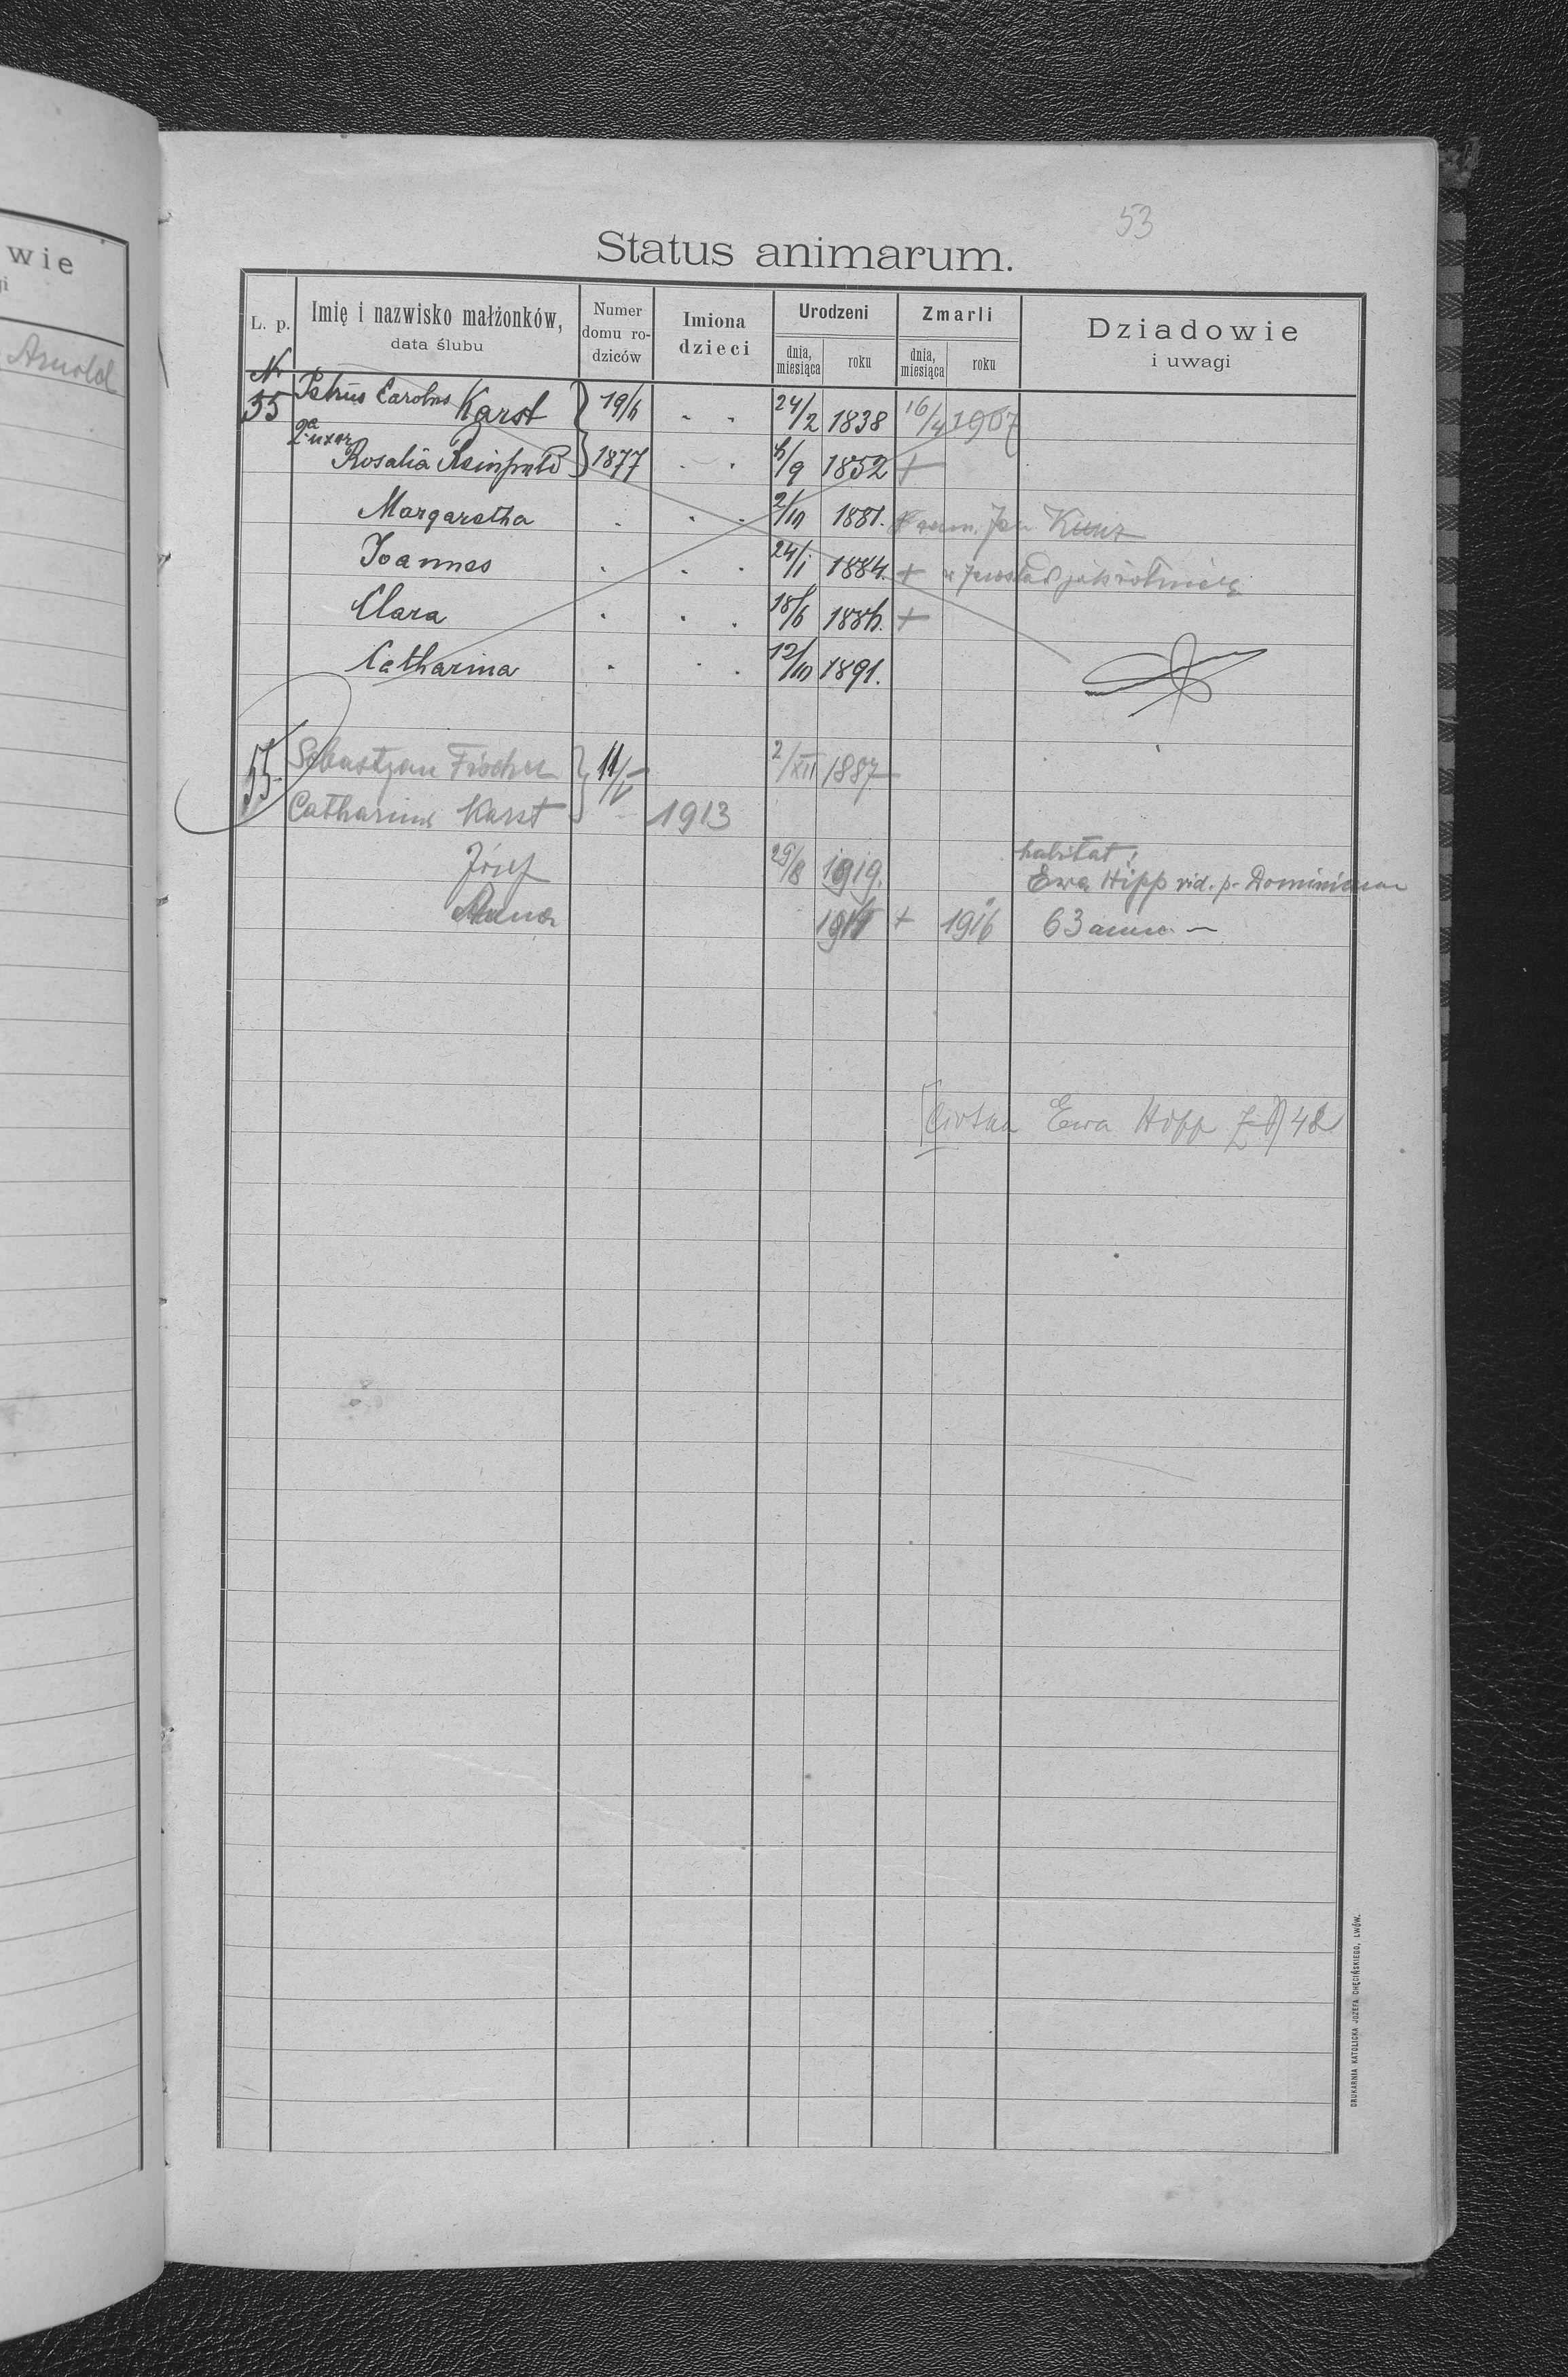 wie
gi
Arnold
53
Status animarum.
L. p.
Imię i nazwisko małżonków,
data ślubu
Numer
domu ro-
dziców
Imiona
dzieci
Urodzeni
dnia,
miesiąca
roku
Zmarli
dnia,
miesiąca
roku
Dziadowie
i uwagi
N
55 Petrus Carolus Karst 19/6 24/2 1838 16/4 1907
2a uxor
Rosalia 1877 /9 1852 +
Margaretha 2/10 1881. Jan Kunz
Joannes 24/1 1884. +
Clara 18/6 1886. +
Catharina 12/10 1891.
55. Sebastyan Fischer 11/ 2/XII 1887
Catharina Karst 1913
Józef 29/8 1919. habitat:
Ewa Hipp vid. p. Dominicum
Anna + 1916 63 anno
Ciotka Ewa Hipp
DRUKARNIA KATOLICKA JÓZEFA CHĘCIŃSKIEGO, LWÓW.